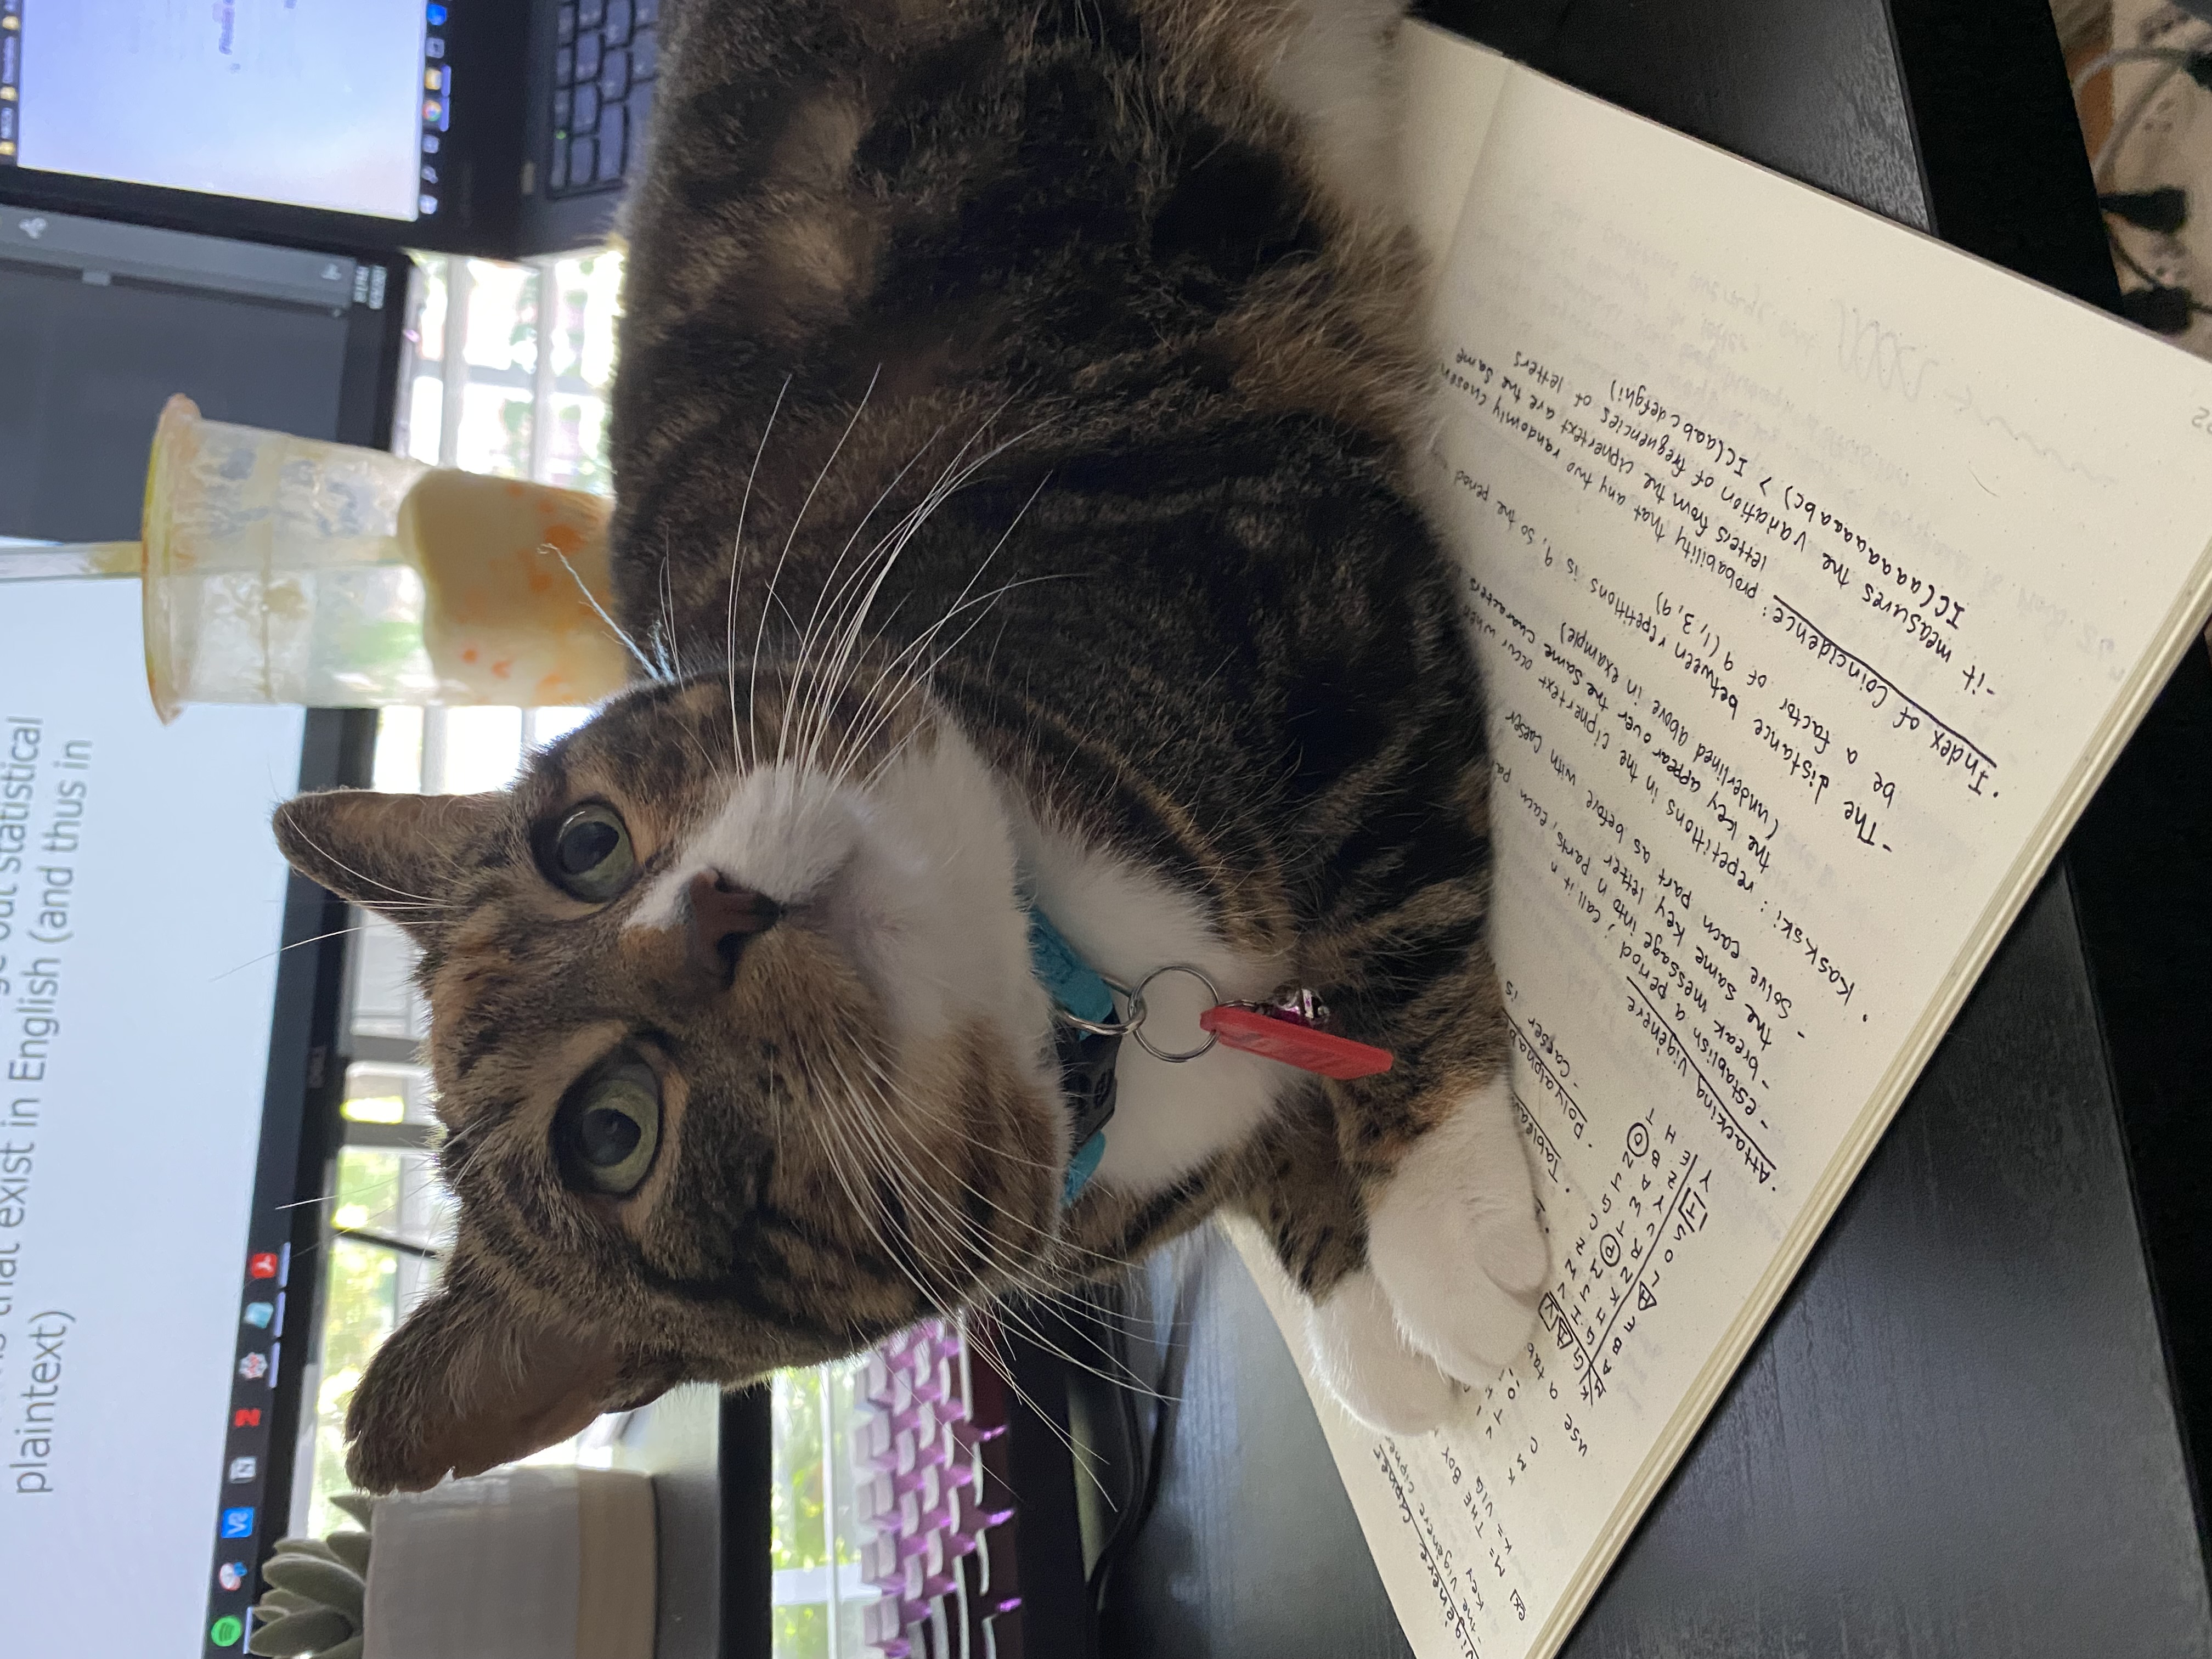 that exist in English (and thus in
plaintext)
out statistical
DELL
Vigenere Cipher
- the Vigenere cipher
key
ex) M= THE BOY
K= VIG
K V I
M T H
C O
use a tab
K G I V
M
A G I V
B H J W
E K M Z
H N P C
L R T G
O U W J
S Y A N
T Z B O
Y E H T
· Tableau
· polyalphab
- Caesar is
· Attacking Vigenere
- establish a period; call it n
- break message into n parts, each pa
the same key letter
- Solve each part as before with Caeser
· Kaskski: repetitions in the ciphertext occur when
the key appear over the same characters
(underlined above in example)
- The distance between repetitions is 9, so the period
be a factor of 9 (1, 3, 9)
· Index of Coincidence: probability that any two randomly chosen
letters from the ciphertext are the same
- it measures the variation of frequencies of letters
IC(aaaaaaaabc) > IC(aabcdefghi)